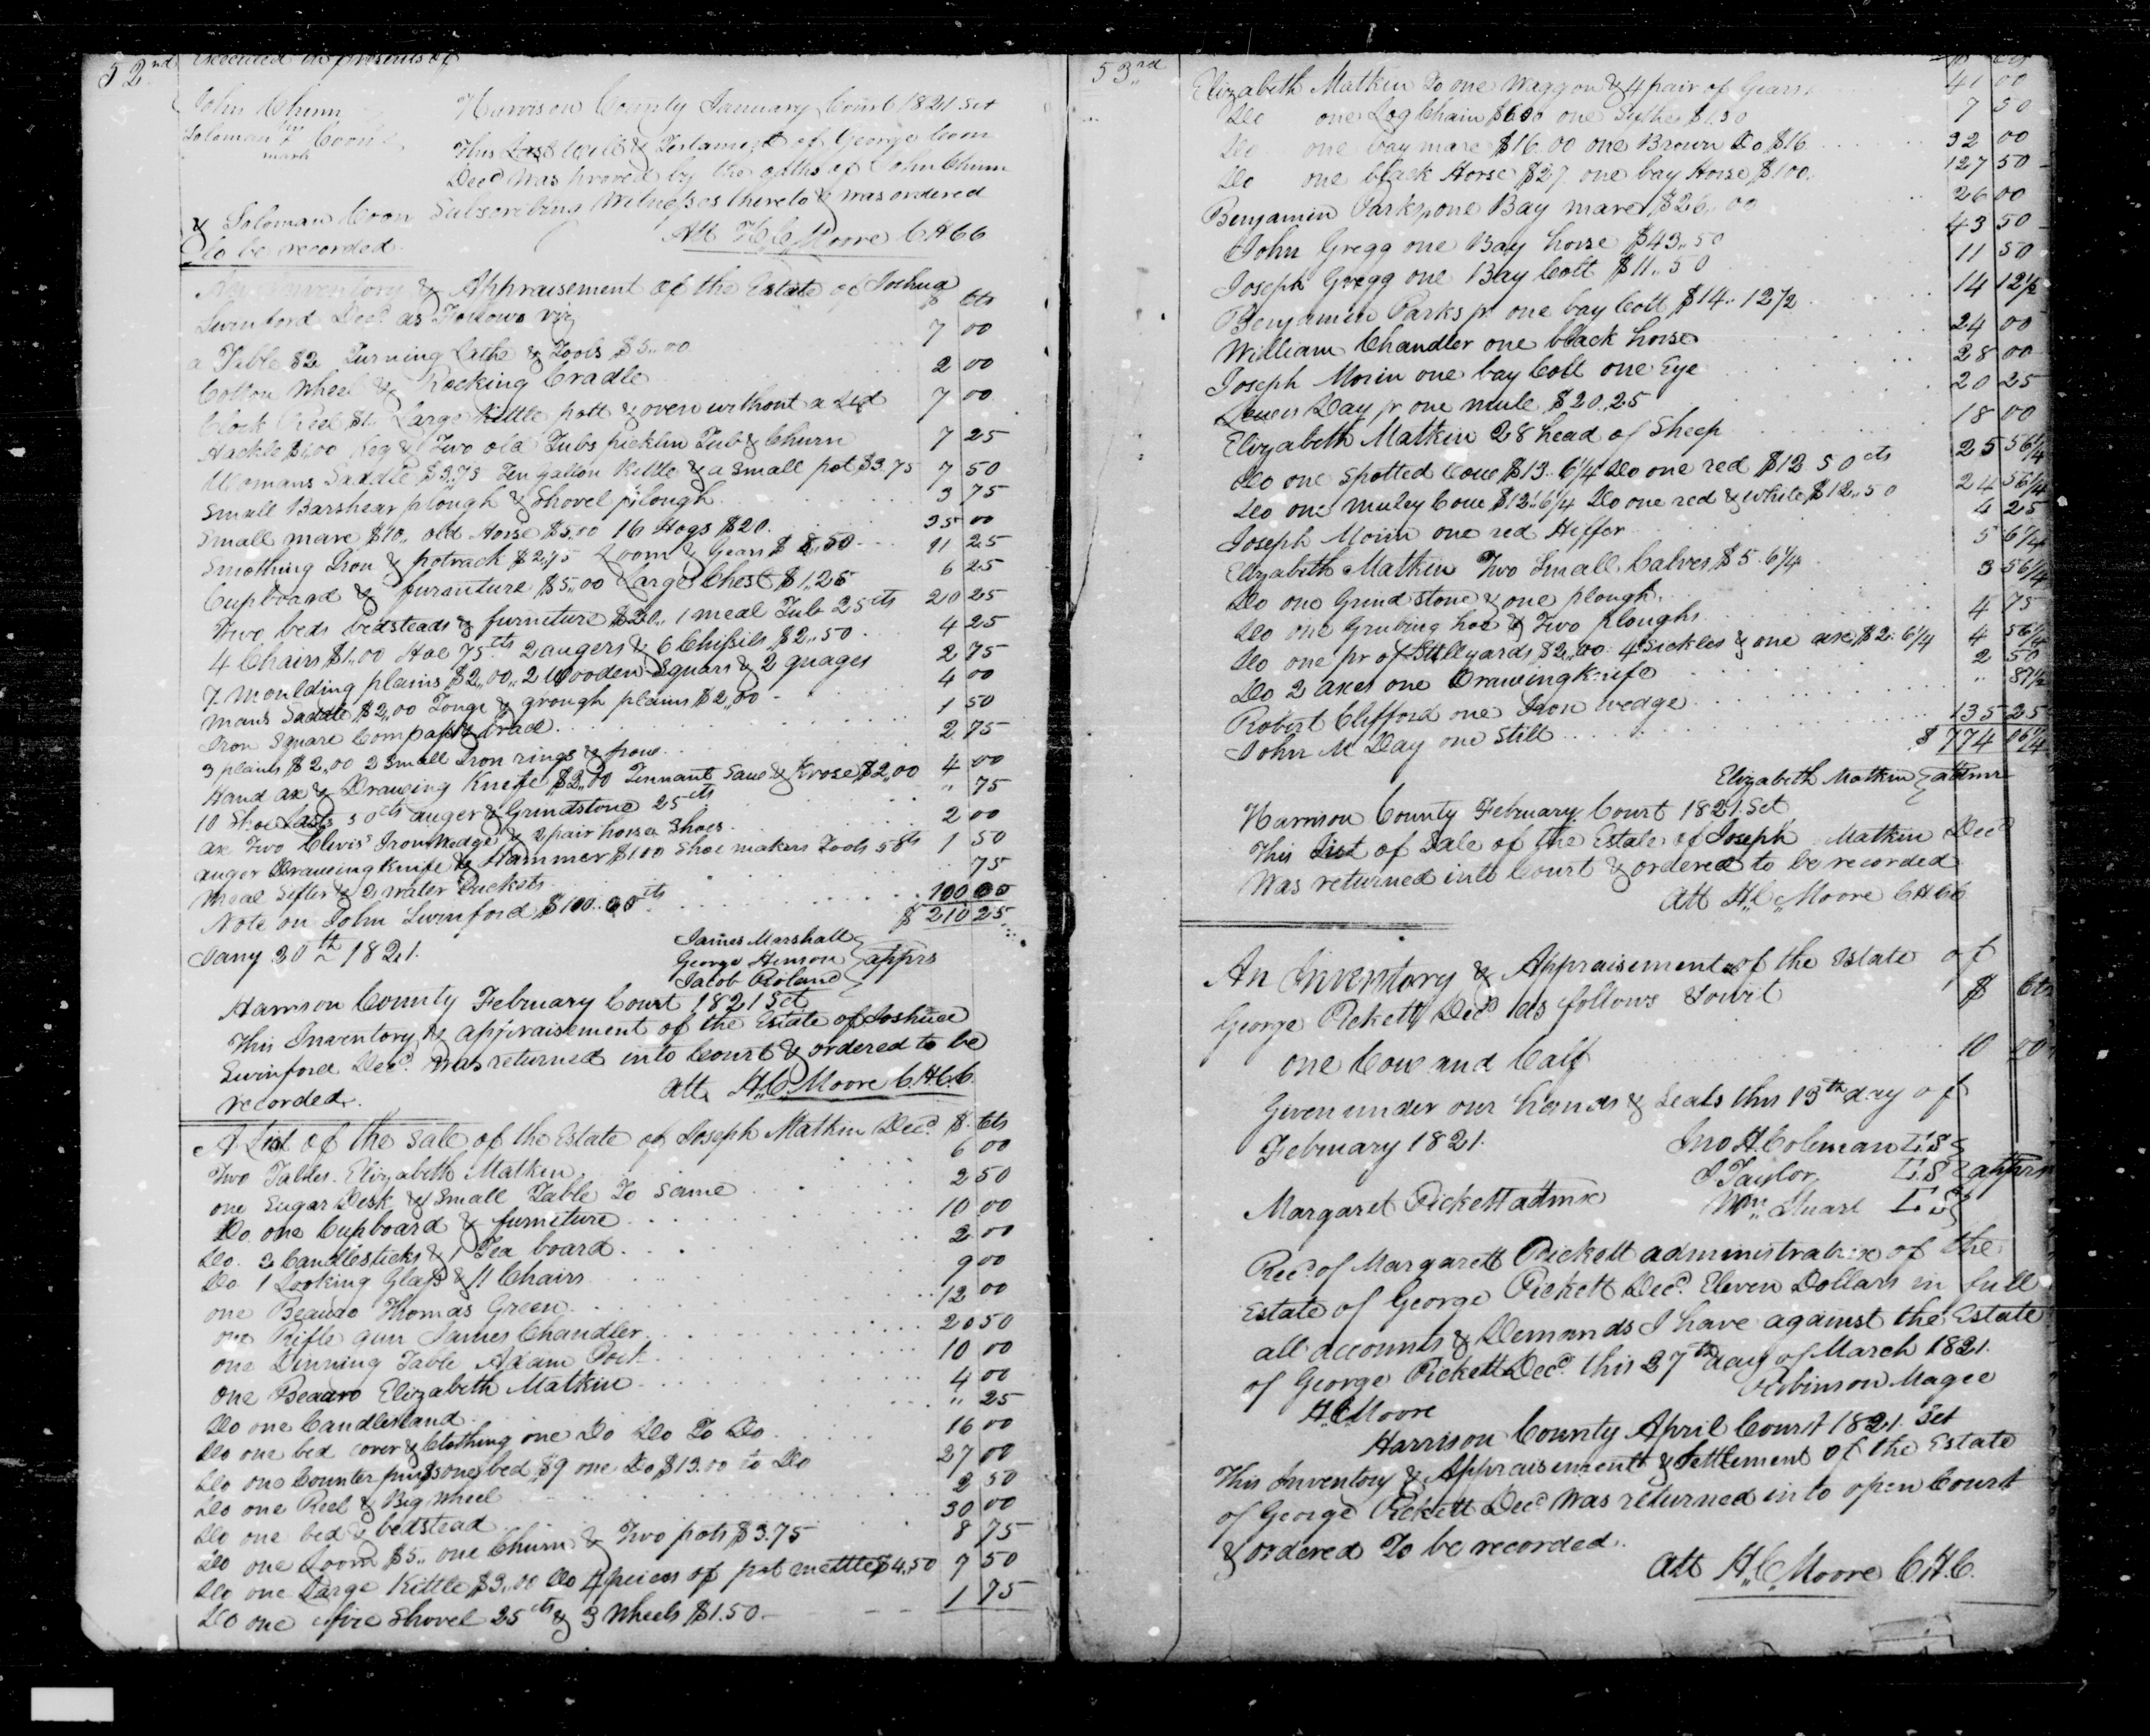 52nd
Executed in presents of
John Chunn
Soloman his Coon
mark
Harrison County January Court 1821 Sct
This Last Will & Testament of George Coon
Decd was proved by the oaths of John Chunn
& Soloman Coon Subscribing Witnesses thereto & was ordered
to be recorded.
Att H,C,Moore C.H.C.C
An Inventory & Appraisement of the Estate of Joshua
Swinford Decd as Follows viz $ Cts
a Table $2 Turning Lathe & Tools $5,,00 7 00
Cotton Wheel & Rocking Cradle 2 00
Clock Reel $1. Large Kittle pott & oven without a Led 7 00
Hackle $1,00 Keg & Two old Tubs picklin Tub & Churn 7 25
Womans Saddle $3,75 Ten gallon Kittle & a Small pot $3.75 7 50
Small Barshear plough & Shovel plough 3 75
Small mare $10,, old Horse $5,00 16 Hogs $20. 35 00
Smothing Iron & potrack $2,75 Loom & Gears $8,50 11 25
Cupboard & furniture $5,,00 Large Chest $1,,25 6 25
Two beds bedsteads & furniture $20,, 1 meal Tub 25cts 20 25
4 Chairs $1,,00 Hoe 75cts 2 augers & 6 Chissils $2,,50 4 25
7 Moulding plains $2,,00,, 2 Wooden Squars & 2 guages 2 75
Mans Saddle $2,,00 Tongu & grough plains $2,,00 4 00
Iron Square Compass & brace 1 50
3 plains $2,,00 2 Small Iron rings & frow 2 75
Hand ax & Drawing Knife $2,,00 Tennant Saw & Krose $2,,00 4 00
10 Shoe Lasts 50cts auger & Grindstone 25cts ,, 75
ax Two Clevis Iron Wedge & 2 pair horse Shoes 2 00
auger Drawing Knife & Hammer $1 00 Shoe makers Tools 50cts 1 50
Meal Sifter & 2 water Buckets 75
Note on John Swinford $100..00cts 100 00
$ 210 25
Jany 30th 1821.
James Marshall
George Hinson apprs
Jacob Roland
Harrison County February Court 1821 Sct
This Inventory & appraisement of the Estate of Joshua
Swinford Decd was returned into Court & ordered to be
recorded.
att. H,,C,Moore C.H.C.C.
A List of the Sale of the Estate of Joseph Matkin Decd $. Cts
Two Tables. Elizabeth Matkin 6 00
one Sugar Desk & Small Table To Same 2 50
Do. one Cupboard & furniture 10 00
Do. 2 Candlesticks & 1 Tea board 2 00
Do 1 Looking Glass & 11 Chairs 9 00
one Beauro Thomas Green 12 00
one Rifle gun James Chandler 20 50
one Dinning Table Adam 10 00
one Beauro Elizabeth Matkin 4 00
Do one Candlestand ,, 25
Do one bed cover & Clothing one Do Do To Do 16 00
Do one Counter one bed $9 one Do $13.00 to Do 27 00
Do one Reel & Big Wheel 2 50
Do one bed & bedstead 30 00
Do one Loom $5,, one Churn & Two pots $3.75 8 75
Do one Large Kittle $3,,00 Do 4 pieces of pot mettle $4,50 7 50
Do one fire Shovel 25cts & 3 Wheels $1.50 1 75
53rd
$ Cts
Elizabeth Matkin To one Waggon & 4 pair of Gears 41 00
Do one Log Chain $6 00 one Sythe $1.50 7 50
Do one bay mare $16.00 one Brown Do $16 32 00
Do one black Horse $27 one bay Horse $100 127 50
Benjamin Parks one Bay mare $26,,00 26 00
John Gregg one Bay horse $43,,50 43 50
Joseph Gregg one Bay Colt $11,,50 11 50
Benjamin Parks jr. one bay Colt $14,,12½ 14 12½
William Chandler one black horse 24 00
Joseph Morin one bay Colt one Eye 28 00
Lewis Day jr one mule $20,,25 20 25
Elizabeth Matkin 28 head of Sheep 18 00
Do one Spotted Cow $13..6¼ Do one red $12 50cts 25 56¼
Do one muley Cow $12.6¼ Do one red & white $12,,50 24 56¼
Joseph Morin one red Heffor 4 25
Elizabeth Matkin Two Small Calves $5.6¼ 5 6¼
Do one Grind stone & one plough 3 56¼
Do one Grubing hoe & Two ploughs 4 75
Do one pr of Stillyards $2,,00 4 Sickles & one axe $2.6¼ 4 56¼
Do 2 axes one Drawing Knife 2 50
Robert Clifford one Iron wedge ,, 87½
John M Day one Still 135 25
$ 774 06¼
Elizabeth Matkin admr
Harrison County February Court 1821. Sct
This List of Sale of the Estate of Joseph Matkin Decd
Was returned into Court & ordered to be recorded
att H,C,Moore C.H.C.C
An Inventory & Appraisement of the Estate of
George Pickett Decd as follows Towit $ Cts
one Cow and Calf 10 00
Given under our hands & Seals this 13th day of
February 1821.
Jno H. Coleman L.S
J Taylor L.S apprs
Wm. Stuart L S
Margaret Pickett admx
Recd of Margarett Pickett administratrix of the
Estate of George Pickett Decd. Eleven Dollars in full
all accounts & Demands I have against the Estate
of George Pickett Decd this 27th day of March 1821.
Robinson Magee
H.C.Moore
Harrison County April Court 1821. Sct
This Inventory & Appraisement & Settlement of the Estate
of George Pickett Decd was returned into open Court
& ordered To be recorded.
Att H,,C,Moore C.H.C.